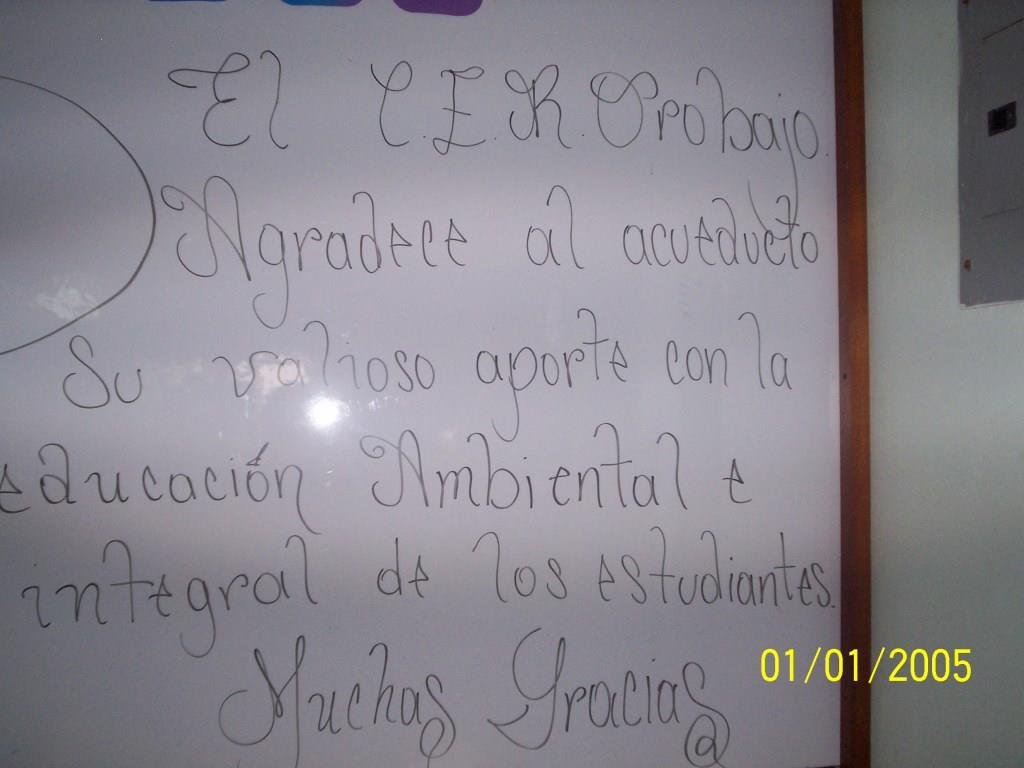 El C.E.R. Orobajo.
Agradece al acueducto
Su valioso aporte con la
educación Ambiental e
integral de los estudiantes.
Muchas Gracias
01/01/2005